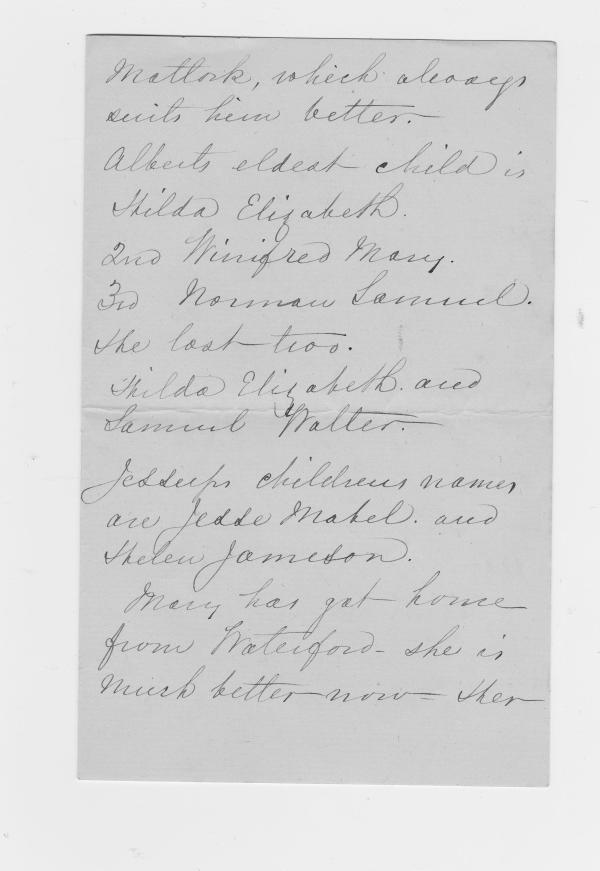 Matlock, which always
suits him better. —
Alberts eldest child is
Hilda Elizabeth.
2nd Winifred Mary.
3rd Norman Samuel.
The last two.
Hilda Elizabeth. and
Samuel Walter. —
Jessups childrens names
are Jesse Mabel. and
Helen Jameson.
Mary has got home
from Waterford - she is
much better now = Her